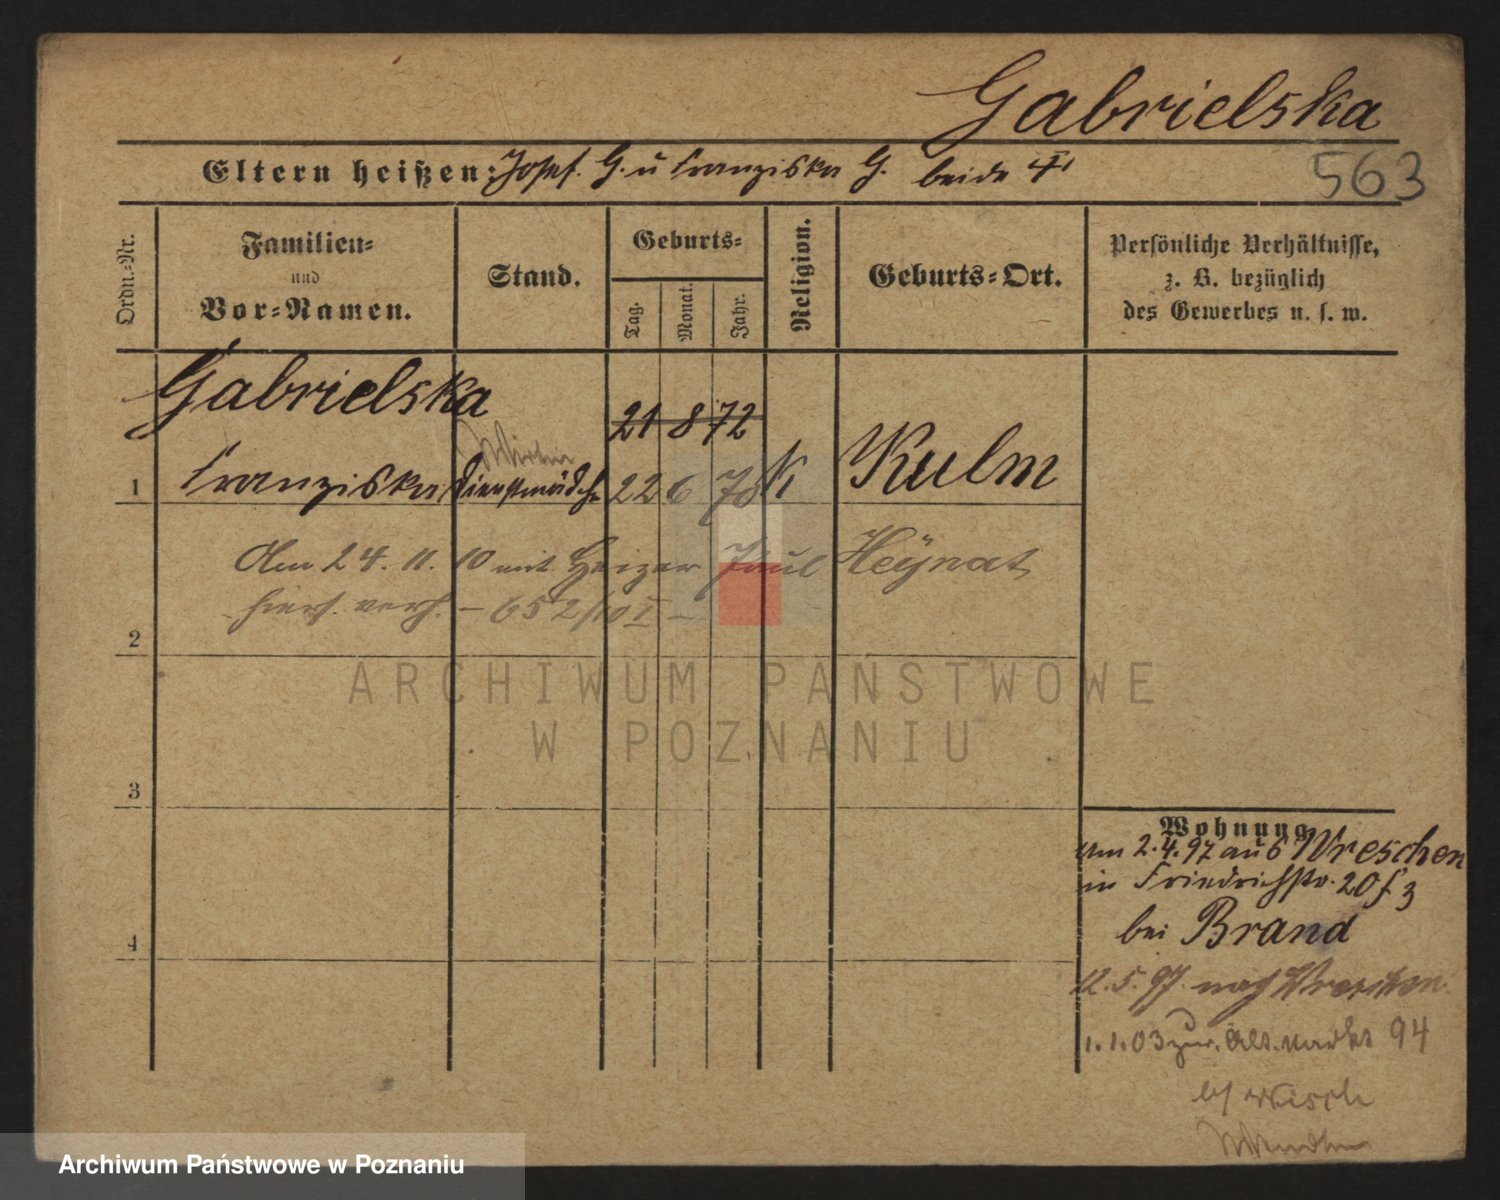 Gabrielska
Eltern heißen: Josef. G. u Franziska G. beide †
563
Ordn.-Nr.
Familien-
und
Vor-Namen.
Stand.
Geburts-
Tag.
Monat.
Jahr.
Religion.
Geburts-Ort.
Persönliche Verhältnisse,
z. B. bezüglich
des Gewerbes u. s. w.
Gabrielska
21 8 72
1 Franziska Dienstmädch 22 6 78 K Kulm
Am 24. 11. 10 mit Heizer Paul Heÿnat
hiers. verh. – 652/10 I –
2
3
4
Wohnung
Am 2.4.97 aus Wreschen
in Friedrichstr. 20
bei Brand
12.5.97. nach Wreschen
1.1.03 zur. Alt. Markt 94
ARCHIWUM PAŃSTWOWE
W POZNANIU
Archiwum Państwowe w Poznaniu